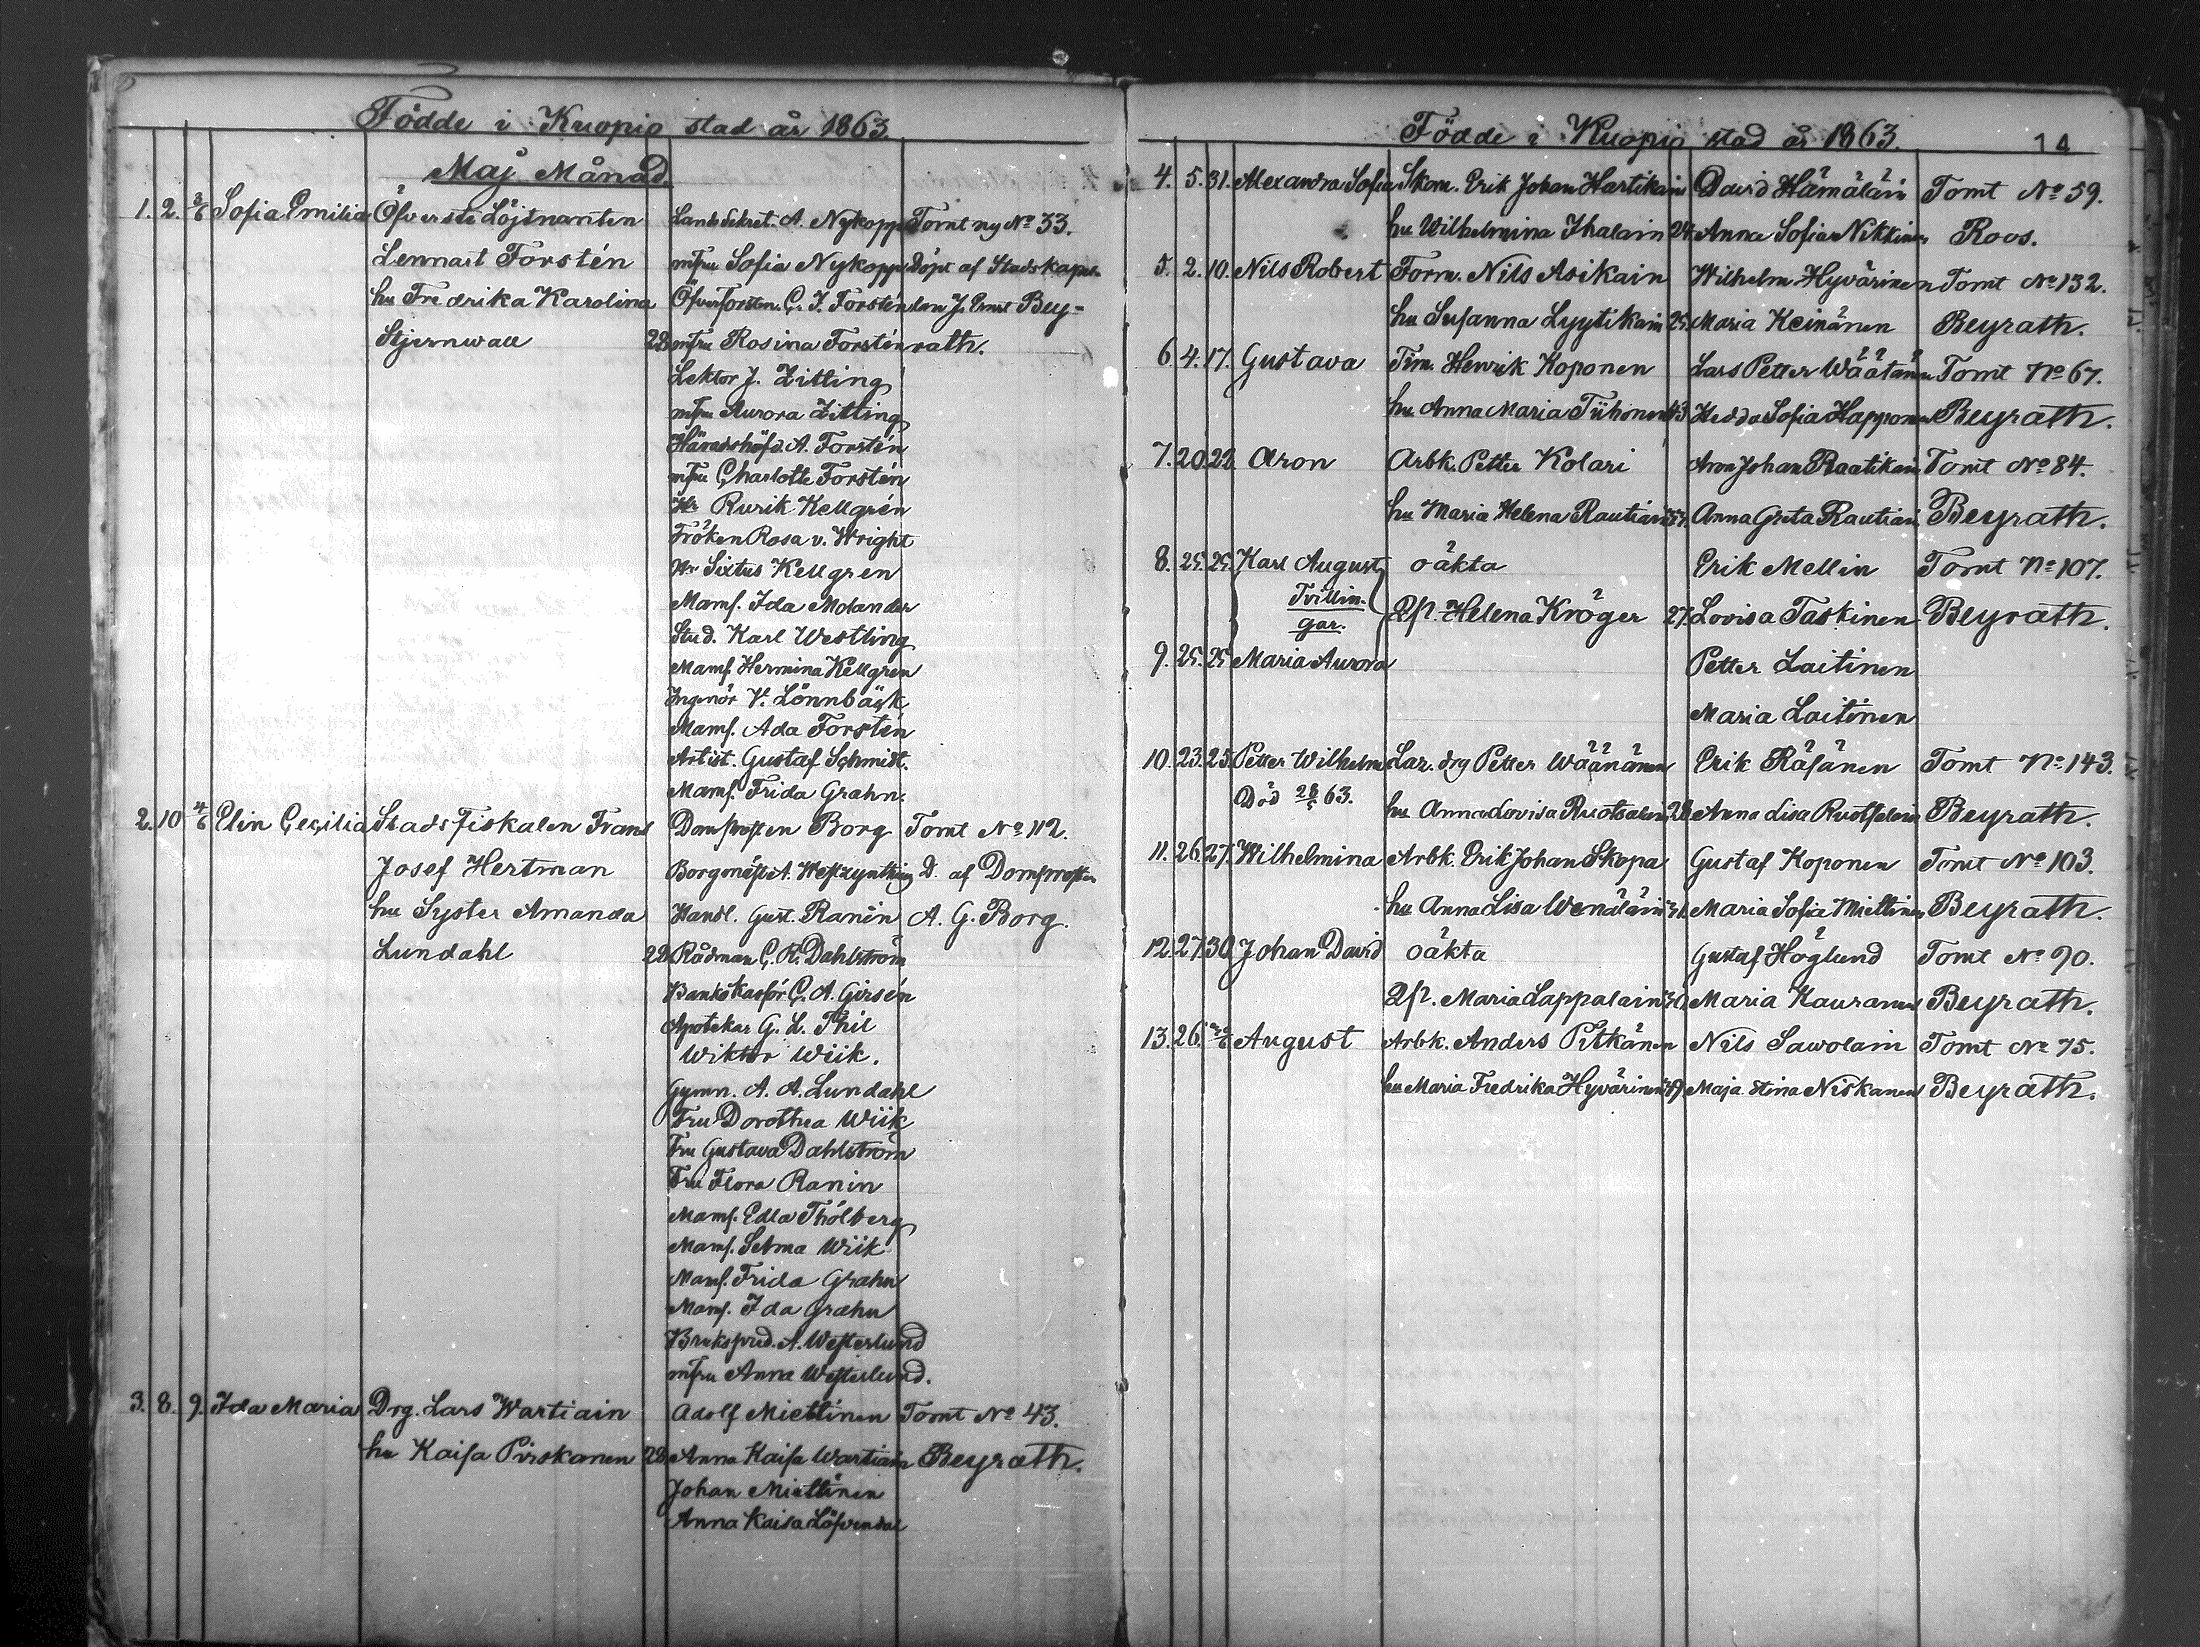 Födde i Kuopio stad år 1863
Maj Månad.
1. 2. 3/6 Sofia Emilia Öfverste Löjtnanten Landssekret. A. Nykopp Tomt ny No 33.
Lennart Forstén mfru Sofia Nykopp Döpt af Stadskapel-
hu Fredrika Karolina Öfverforstm. C. J. Forstén lan J. Ernst Bey-
Stjernwall 28 mfru Rosina Forstén rath.
Lektor J. Zitting
mfru Aurora Zitting
Häradshöfd. A. Forstén
mfru Charlotte Forstén
Hr Rurik Kellgrén
Fröken Rosa v. Wright
Hr Sixtus Kellgren
Mams. Ida Molander
Stud. Karl Westling
Mams. Hermina Kellgren
Ingeniör V. Lönnbäck
Mams. Ada Forstén
Artist. Gustaf Schmidt.
Mams. Frida Grahn.
2. 10 4/6 Elin Cecilia Stads Fiskalen Frans Domprosten Borg Tomt No 112.
Josef Hertman Borgmäst. A. Weszynthius D. af Domprosten
hu Syster Amanda Handl. Gust. Ranin A. G. Borg.
Lundahl 28 Rådman C. R. Dahlström
Bankskassör C. A. Girsén
Apotekar G. L. Thil
Wiktor Wiik.
Gymn. A. A. Lundahl
Fru Dorothea Wiik
Fru Gustava Dahlström
Fru Flora Ranin
Mams. Edla Thölberg
Mams. Selma Wiik
Mams. Frida Grahn
Mams. Ida Grahn
Brukspred. A. Westerlund
mfru Anna Westerlund.
3. 8. 9. Ida Maria Drg. Lars Wartiain Adolf Miettinen Tomt No 43.
hu Kaisa Piiskanen 28 Anna Kaisa Wartiain Beyrath.
Johan Miettinen
Anna Kaisa Löfvendal
Födde i Kuopio stad år 1863. 14
4. 5. 31. Alexandra Sofia Skom. Erik Johan Hartikain David Hämäläin Tomt No 59.
hu Wilhelmina Ihalain 24 Anna Sofia Nikkinen Roos.
5. 2. 10. Nils Robert Form. Nils Asikain Wilhelm Hyvärinen Tomt No 132.
hu Susanna Lyytikain 25 Maria Keinänen Beyrath.
6. 4. 17. Gustava Tim. Henrik Koponen Lars Petter Wäätänen Tomt No 67.
hu Anna Maria Tiihonen 43 Hedda Sofia Happonen Beyrath.
7. 20. 22 Aron Arbk. Petter Kolari Aron Johan Raatikain Tomt No 84.
hu Maria Helena Rautiain Anna Greta Rautiain Beyrath.
8. 25. 25. Karl August oäkta Erik Mellin Tomt No 107.
Tvillin-
gar. Qp. Helena Kröger 27. Lovisa Taskinen Beyrath.
9. 25. 25 Maria Aurora Petter Laitinen
Maria Laitinen
10. 23. 25. Petter Wilhelm Laz. drg Petter Wäänänen Erik Räsänen Tomt No 143.
Död 28/5 63. hu Anna Lovisa Ruotsalain 28 Anna Lisa Ruotsalain Beyrath.
11. 26. 27. Wilhelmina Arbk. Erik Johan Skopa Gustaf Koponen Tomt No 103.
hu Anna Lisa Wenäläin Maria Sofia Miettinen Beyrath.
12. 27. 30 Johan David oäkta Gustaf Höglund Tomt No 90.
Qp. Maria Lappalain 30. Maria Kauranen Beyrath.
13. 26. August Arbk. Anders Pitkänen Nils Sawolain Tomt No 75.
hu Maria Fredrika Hyvärinen Maja Stina Niskanen Beyrath.